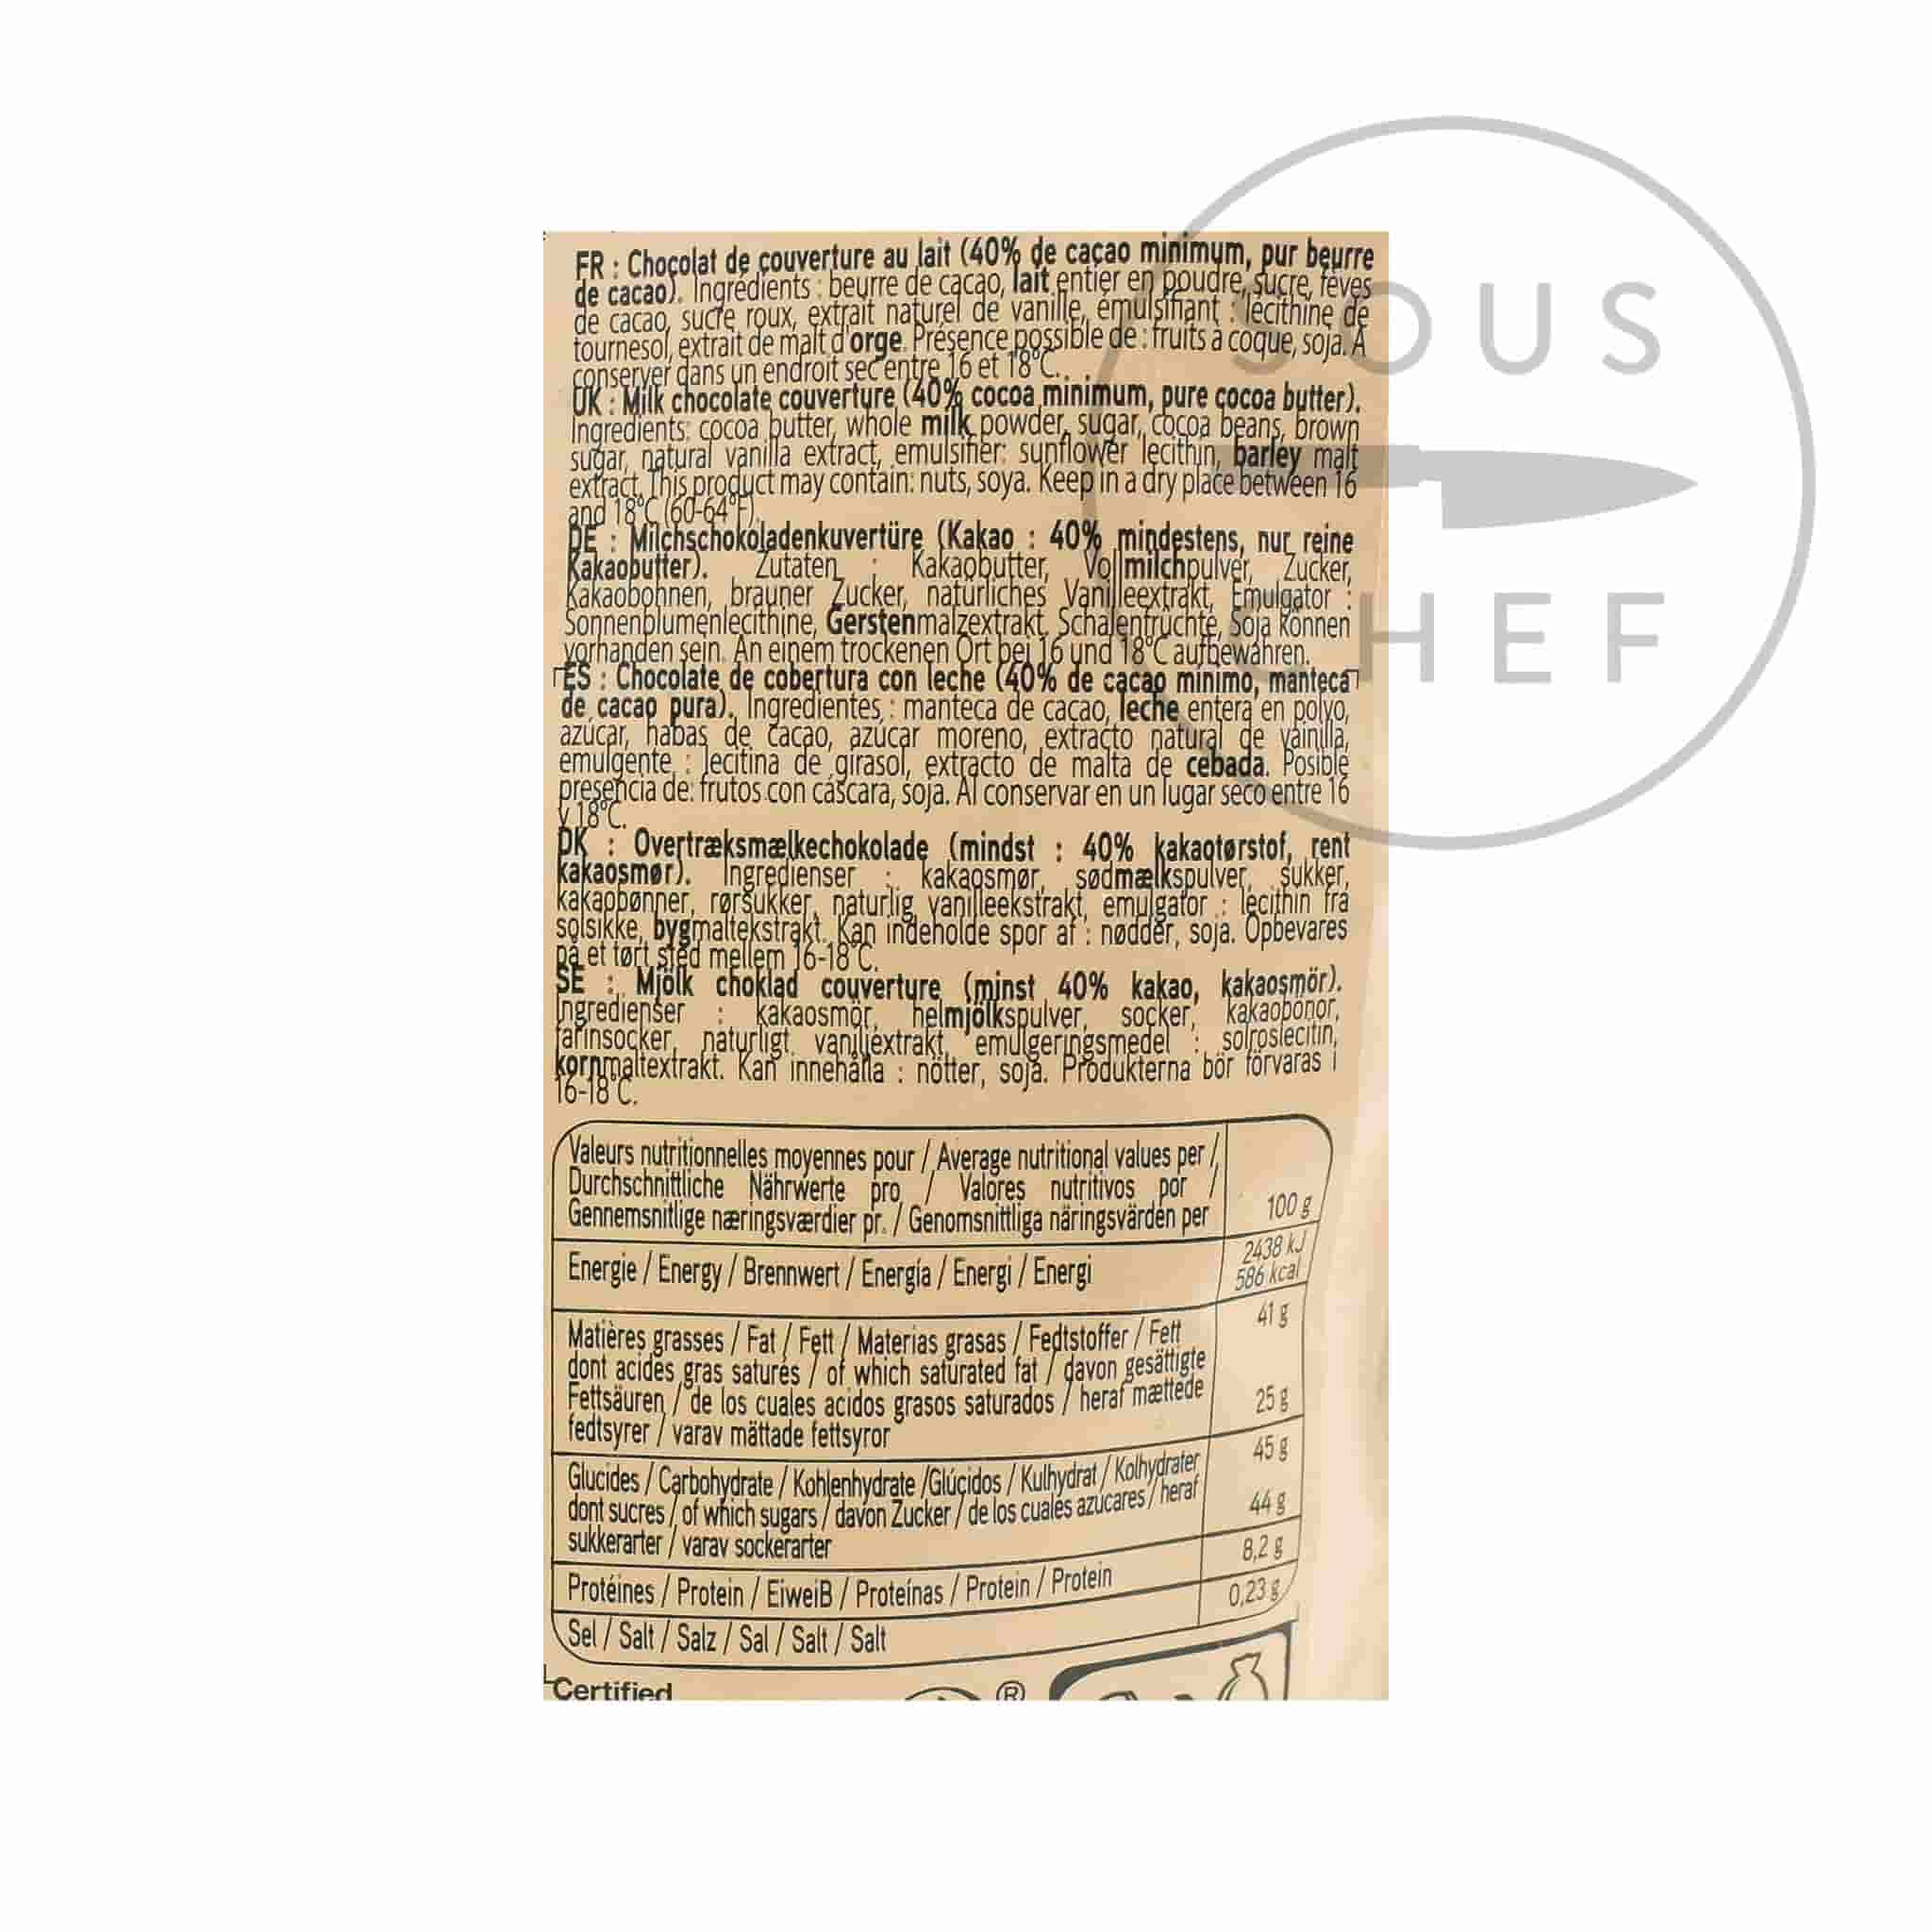 FR : Chocolat de couverture au lait (40% de cacao minimum, pur beurre
de cacao). Ingrédients : beurre de cacao, lait entier en poudre, sucre, fèves
de cacao, sucre roux, extrait naturel de vanille, émulsifiant : lécithine de
tournesol, extrait de malt d'orge. Présence possible de : fruits à coque, soja. A
conserver dans un endroit sec entre 16 et 18°C.
UK : Milk chocolate couverture (40% cocoa minimum, pure cocoa butter).
Ingredients: cocoa butter, whole milk powder, sugar, cocoa beans, brown
sugar, natural vanilla extract, emulsifier: sunflower lecithin, barley malt
extract. This product may contain: nuts, soya. Keep in a dry place between 16
and 18°C (60-64°F).
DE : Milchschokoladenkuvertüre (Kakao : 40% mindestens, nur reine
Kakaobutter). Zutaten : Kakaobutter, Vollmilchpulver, Zucker,
Kakaobohnen, brauner Zucker, natürliches Vanilleextrakt, Emulgator :
Sonnenblumenlecithine, Gerstenmalzextrakt. Schalenfrüchte, Soja können
vorhanden sein. An einem trockenen Ort bei 16 und 18°C aufbewahren.
ES : Chocolate de cobertura con leche (40% de cacao mínimo, manteca
de cacao pura). Ingredientes : manteca de cacao, leche entera en polvo,
azúcar, habas de cacao, azúcar moreno, extracto natural de vainilla,
emulgente : lecitina de girasol, extracto de malta de cebada. Posible
presencia de: frutos con cáscara, soja. Al conservar en un lugar seco entre 16
y 18°C.
DK : Overtræksmælkechokolade (mindst : 40% kakaotørstof, rent
kakaosmør). Ingredienser : kakaosmør, sødmælkspulver, sukker,
kakaobønner, rørsukker, naturlig vanilleekstrakt, emulgator : lecithin fra
solsikke, bygmaltekstrakt. Kan indeholde spor af : nødder, soja. Opbevares
på et tørt sted mellem 16-18°C.
SE : Mjölk choklad couverture (minst 40% kakao, kakaosmör).
Ingredienser : kakaosmör, helmjölkspulver, socker, kakaobönor,
farinsocker, naturligt vaniljextrakt, emulgeringsmedel : solroslecitin,
kornmaltextrakt. Kan innehålla : nötter, soja. Produkterna bör förvaras i
16-18°C.
Valeurs nutritionnelles moyennes pour / Average nutritional values per /
Durchschnittliche Nährwerte pro / Valores nutritivos por /
Gennemsnitlige næringsværdier pr. / Genomsnittliga näringsvärden per
100 g
Energie / Energy / Brennwert / Energía / Energi / Energi
2438 kJ
586 kcal
Matières grasses / Fat / Fett / Materias grasas / Fedtstoffer / Fett
41 g
dont acides gras saturés / of which saturated fat / davon gesättigte
Fettsäuren / de los cuales acidos grasos saturados / heraf mættede
fedtsyrer / varav mättade fettsyror
25 g
Glucides / Carbohydrate / Kohlenhydrate /Glúcidos / Kulhydrat / Kolhydrater
45 g
dont sucres / of which sugars / davon Zucker / de los cuales azucares / heraf
sukkerarter / varav sockerarter
44 g
Protéines / Protein / EiweiB / Proteínas / Protein / Protein
8,2 g
Sel / Salt / Salz / Sal / Salt / Salt
0,23 g
Certified
®
SOUS
CHEF